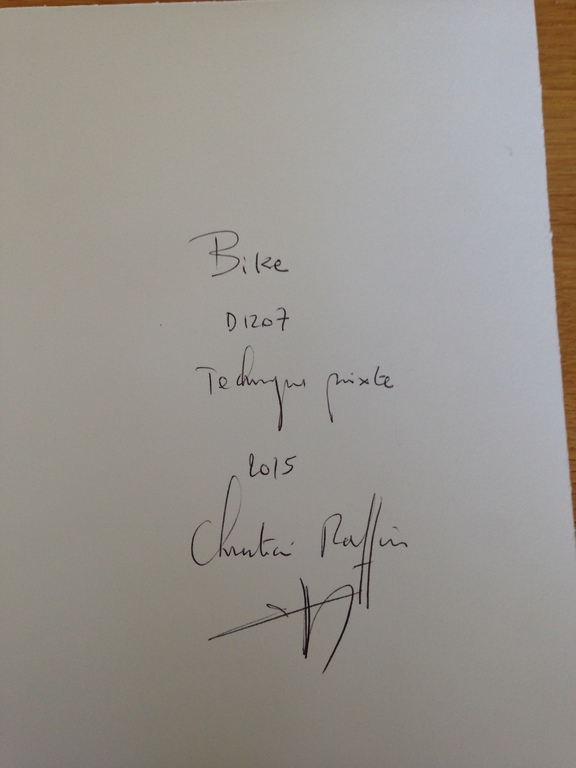 Bike
D1207
Technique mixte
2015
Christian Raffin